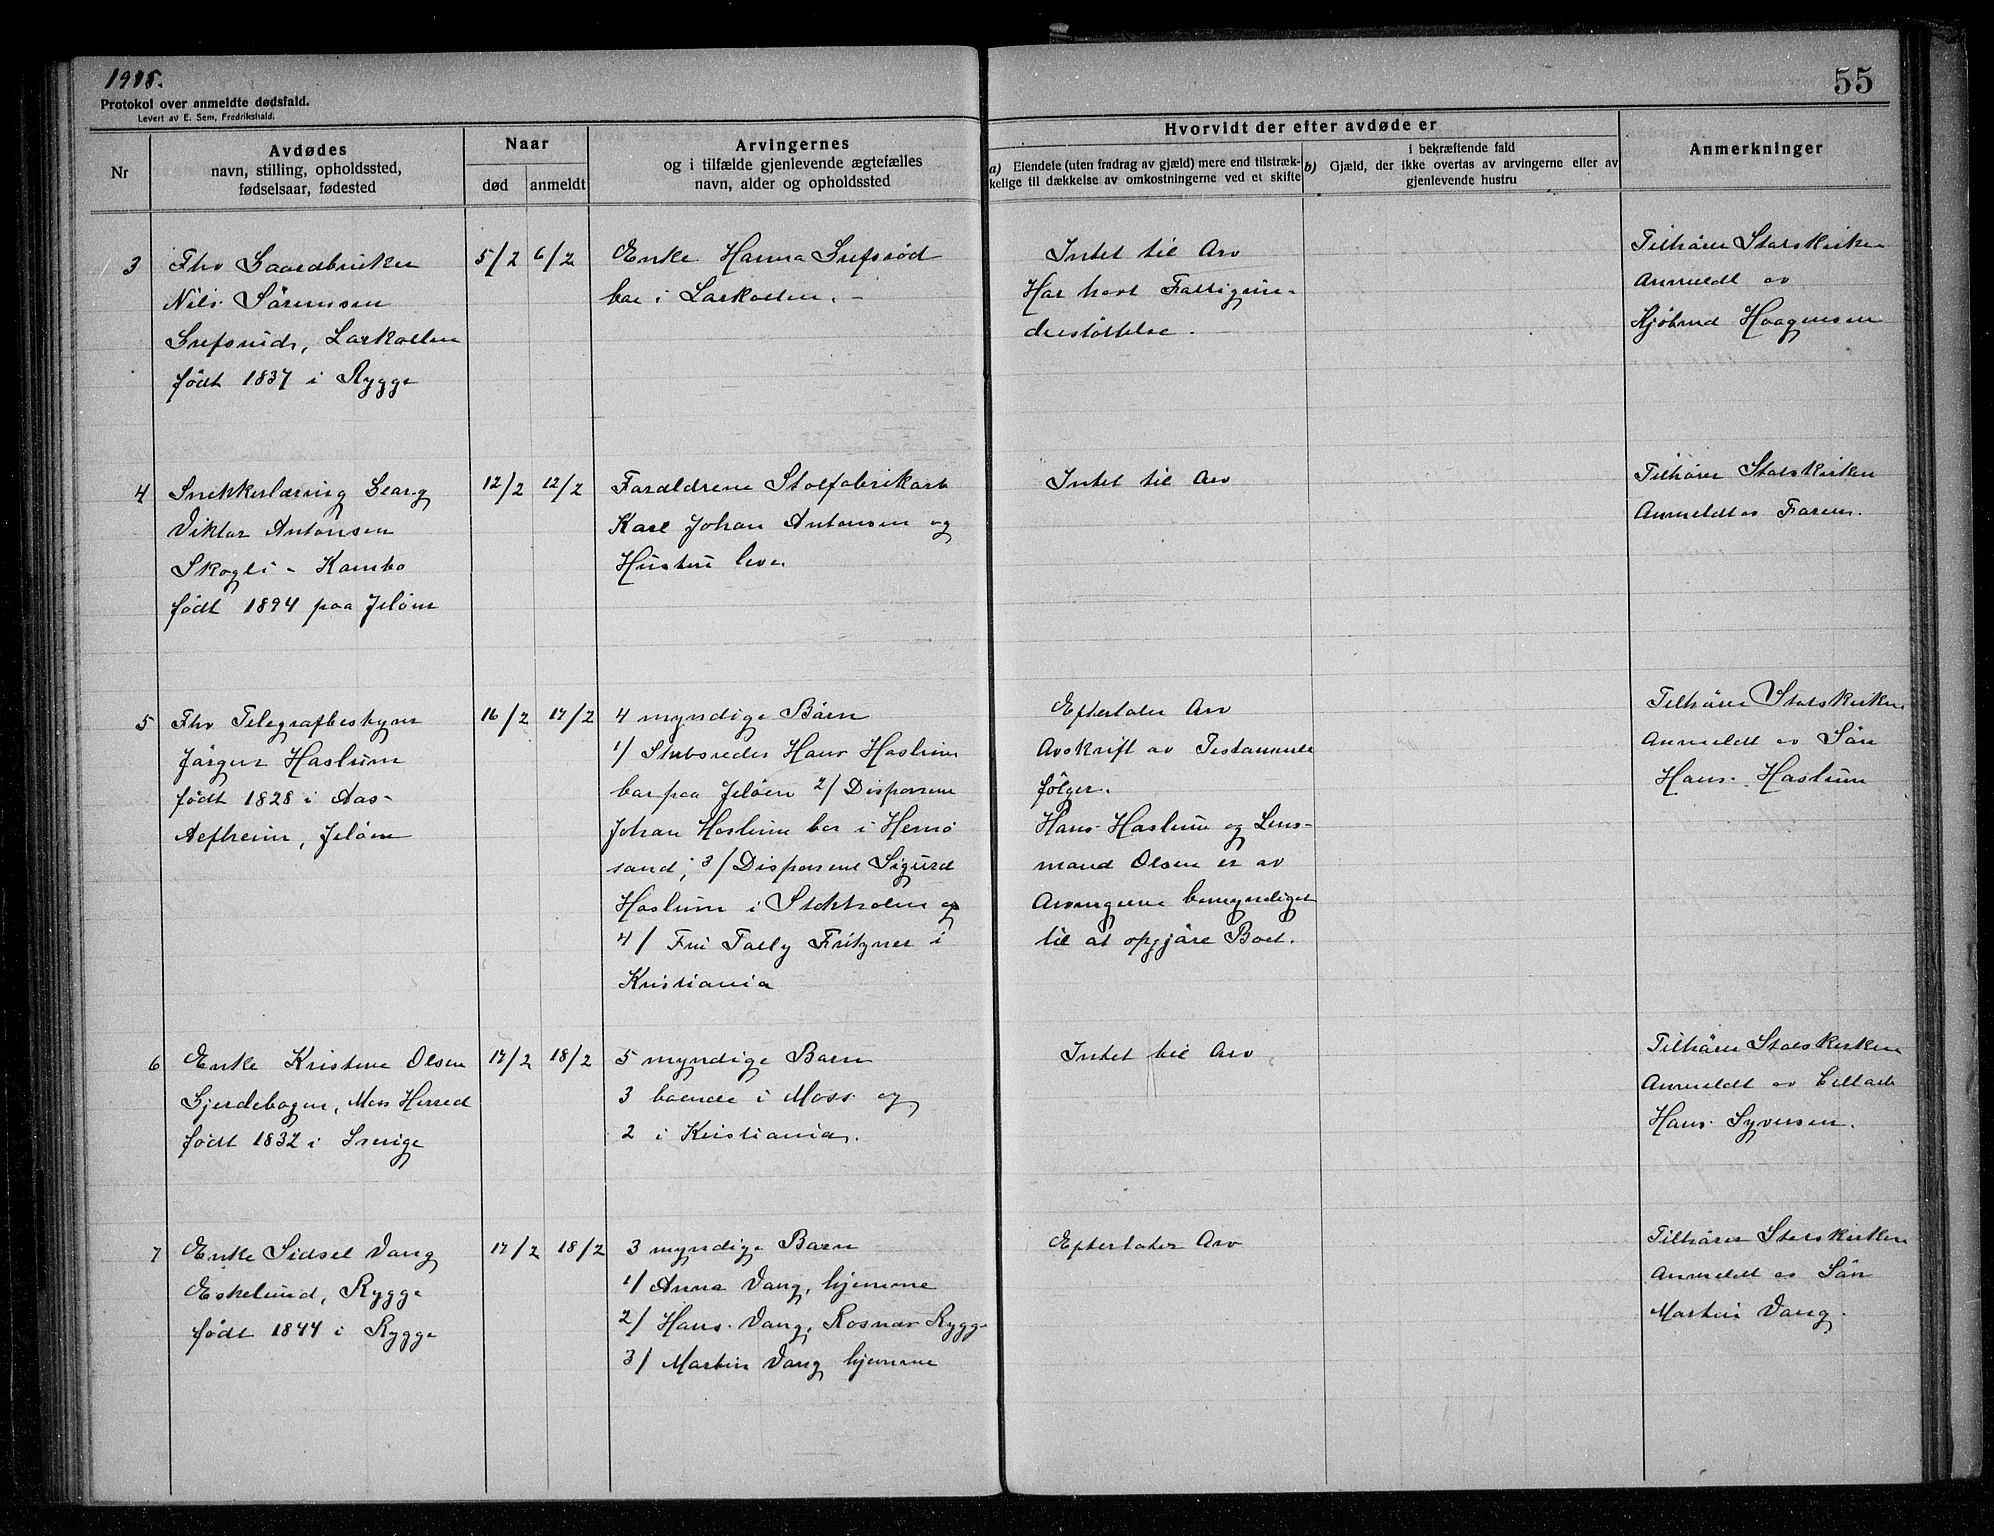 1915.
55
Protokol over anmeldte dødsfald.
Levert av E. Sem, Fredrikshald.
Nr
Avdødes
navn, stilling, opholdssted,
fødselsaar, fødested
Naar
død
anmeldt
Arvingernes
og i tilfælde gjenlevende ægtefælles
navn, alder og opholdssted
Hvorvidt der efter avdøde er
a) Eiendele (uten fradrag av gjæld) mere end tilstræk-
kelige til dækkelse av omkostningerne ved et skifte
i bekræftende fald
b) Gjæld, der ikke overtas av arvingerne eller av
gjenlevende hustru
Anmerkninger
3
Fhv Gaardbruker
Nils Sörensen
Grefsrud, Larkollen
født 1837 i Rygge
5/2 6/2
Enke Hanna Grefsrød
bor i Larkollen. -
Intet til Arv
Har havt Fattigun-
derstøttelse.
Tilhører Statskirken
Anmeldt av
Kjöbmd Haagensen
4
Snekkerlærling Georg
Viktor Antonsen
Skogli - Kambo
født 1894 paa Jeløen
12/2 12/2
Forældrene Stolfabrikarb
Karl Johan Antonsen og
Hustru lever
Intet til Arv
Tilhører Statskirken
Anmeldt av Faren.
5
Fhv Telegrafbestyrer
Jørgen Haslum
født 1828 i Aas-
Aefheim, Jeløen
16/2 17/2
4 myndige Børn
1/ Skibsreder Hans Haslum
bor paa Jeløen 2/ Disponent
Johan Haslum bor i Hernö
sand; 3/ Disponent Sigurd
Haslum i Stokholm og
4/ Fru Tally Fritzner i
Kristiania
Efterlater Arv
Avskrift av Testamente
følger.
Hans Haslum og Lens-
mand Olsen er av
Arvingerne bemyndiget
til at opgjøre Boet.
Tilhører Statskirken
Anmeldt av Søn
Hans Haslum
6
Enke Kristine Olsen
Gjerdebogen, Moss Herred
født 1832 i Sverige
17/2 18/2
5 myndige Barn
3 boende i Moss og
2 i Kristiania.
Intet til Arv
Tilhører Statskirken
Anmeldt av Cellarb
Hans Syversen.
7
Enke Sidsel Vang
Eskelund, Rygge
født 1844 i Rygge
17/2 18/2
3 myndige Barn
1/ Anna Vang, hjemme
2/ Hans Vang, Rosnæs Rygge
3/ Martin Vang hjemme
Efterlater Arv
Tilhører Statskirken
Anmeldt av Søn
Martin Vang.